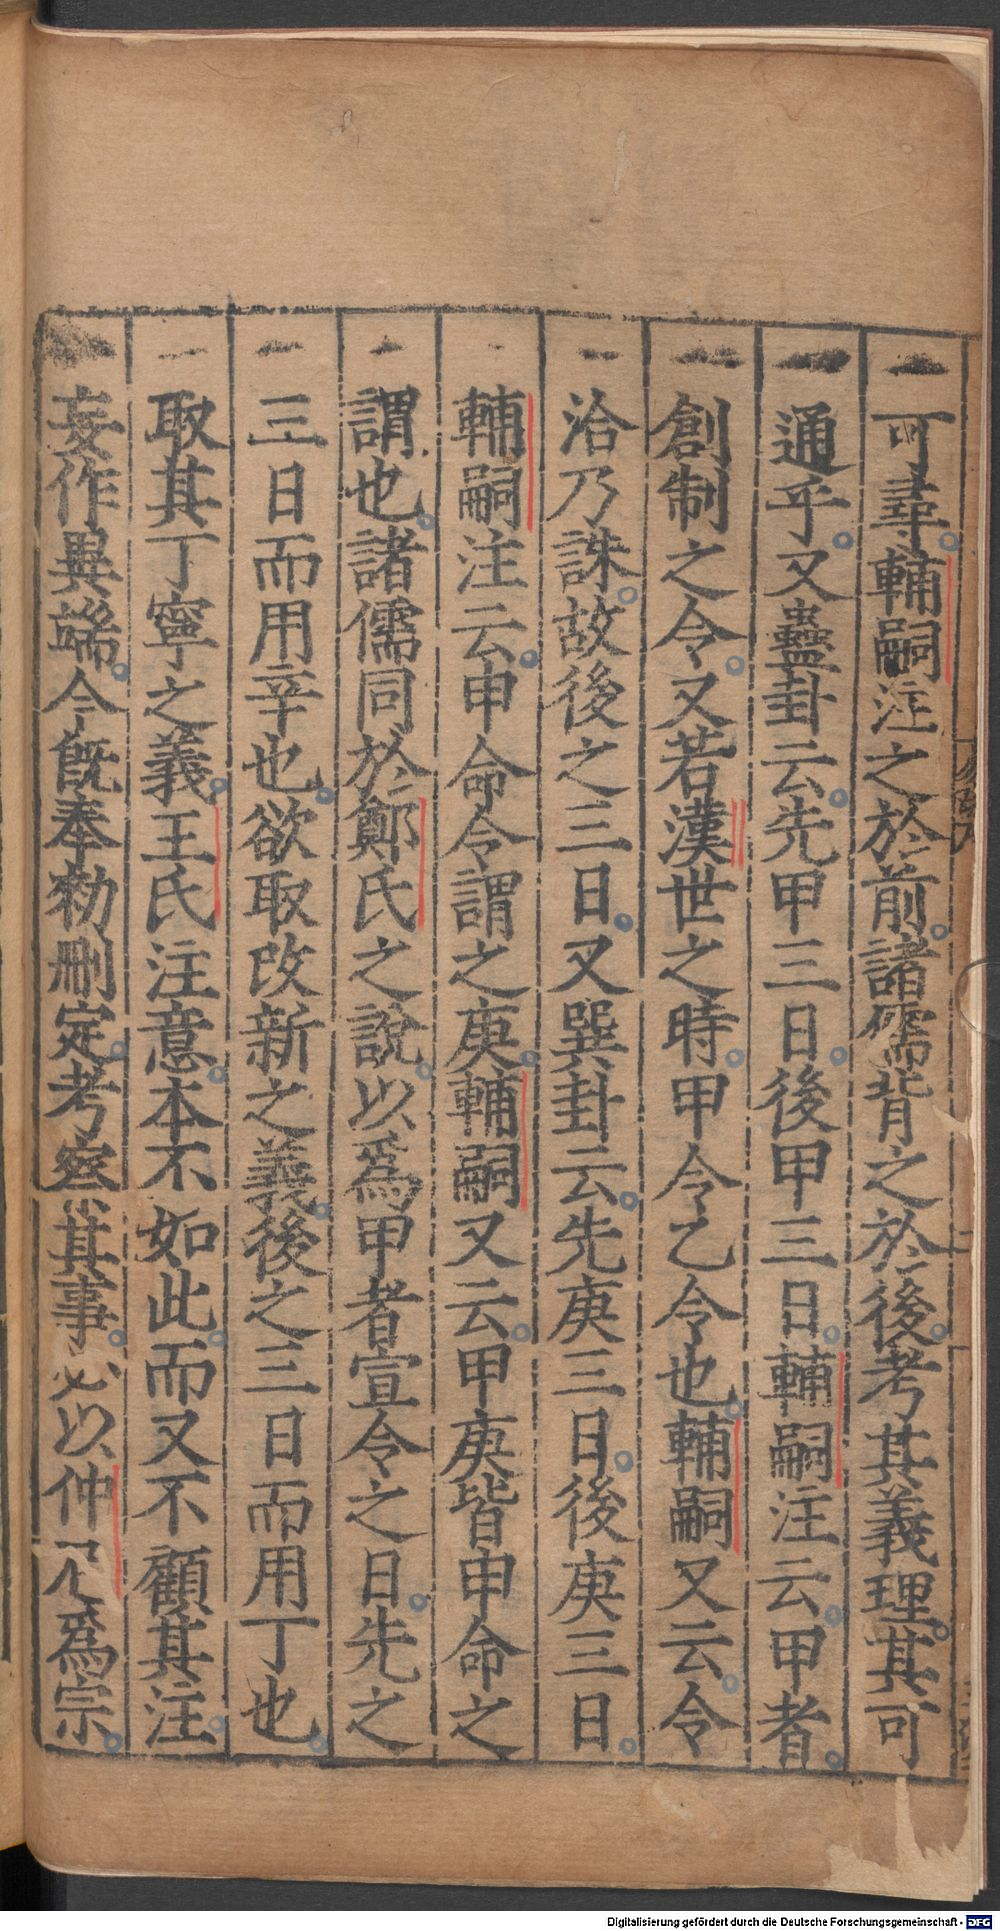 可尋輔嗣注之於前諸儒背之於後考其義理其可
通乎又蠱卦云先甲三日後甲三日輔嗣注云甲者
創制之令又若漢世之時甲令乙令也輔嗣又云令
洽乃誅故後之三日又巽卦云先庚三日後庚三日
輔嗣注云申命令謂之庚輔嗣又云甲庚皆申命之
謂也諸儒同於鄭氏之說以爲甲者宣令之日先之
三日而用辛也欲取改新之義後之三日而用丁也
取其丁寧之義王氏注意本不如此而又不顧其注
妄作異端今旣奉勑刪定考察其事必以仲尼爲宗
Digitalisierung gefördert durch die Deutsche Forschungsgemeinschaft - DFG